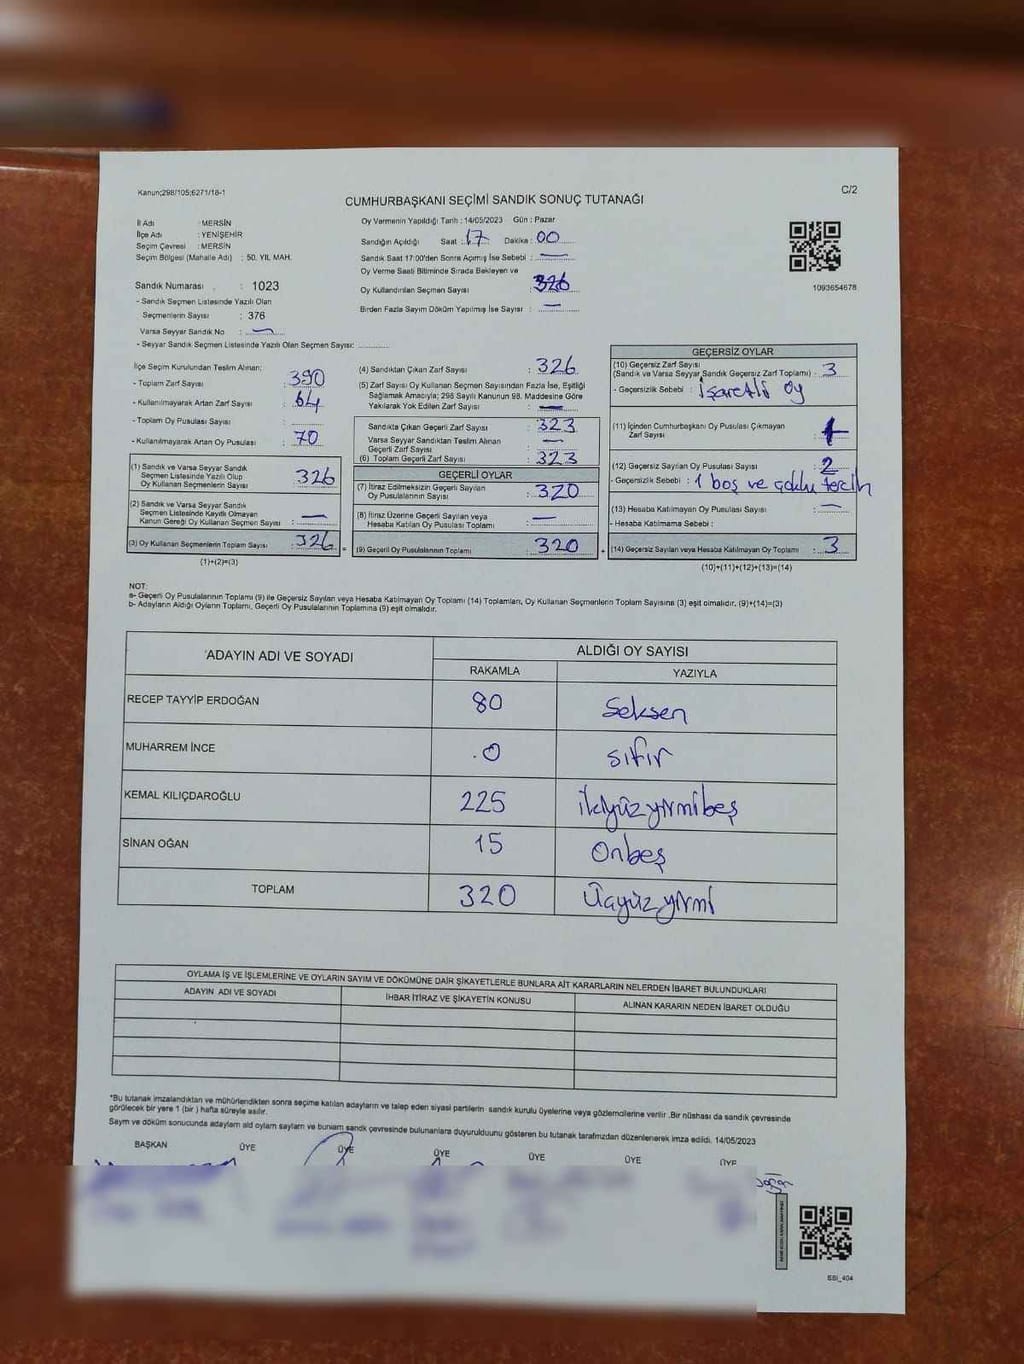 Kanun;298/105;6271/18-1
C/2
CUMHURBAŞKANI SEÇİMİ SANDIK SONUÇ TUTANAĞI
İl Adı : MERSİN
İlçe Adı : YENİŞEHİR
Seçim Çevresi : MERSİN
Seçim Bölgesi (Mahalle Adı) : 50. YIL MAH.
Sandık Numarası : 1023
- Sandık Seçmen Listesinde Yazılı Olan
Seçmenlerin Sayısı : 376
Varsa Seyyar Sandık No : —
- Seyyar Sandık Seçmen Listesinde Yazılı Olan Seçmen Sayısı: ............
Oy Vermenin Yapıldığı Tarih : 14/05/2023 Gün : Pazar
Sandığın Açıldığı Saat : 17 Dakika : 00
Sandık Saat 17:00'den Sonra Açımış İse Sebebi : —
Oy Verme Saati Bitiminde Sırada Bekleyen ve
Oy Kullandırılan Seçmen Sayısı : 326
Birden Fazla Sayım Döküm Yapılmış İse Sayısı : —
1093654678
İlçe Seçim Kurulundan Teslim Alınan;
- Toplam Zarf Sayısı : 390
- Kullanılmayarak Artan Zarf Sayısı : 64
- Toplam Oy Pusulası Sayısı :
- Kullanılmayarak Artan Oy Pusulası : 70
(1) Sandık ve Varsa Seyyar Sandık
Seçmen Listesinde Yazılı Olup
Oy Kullanan Seçmenlerin Sayısı : 326
(2) Sandık ve Varsa Seyyar Sandık
Seçmen Listesinde Kayıtlı Olmayan
Kanun Gereği Oy Kullanan Seçmen Sayısı : —
(3) Oy Kullanan Seçmenlerin Toplam Sayısı : 326
(1)+(2)=(3)
(4) Sandıktan Çıkan Zarf Sayısı : 326
(5) Zarf Sayısı Oy Kullanan Seçmen Sayısından Fazla İse, Eşitliği
Sağlamak Amacıyla; 298 Sayılı Kanunun 98. Maddesine Göre
Yakılarak Yok Edilen Zarf Sayısı : —
Sandıkta Çıkan Geçerli Zarf Sayısı : 323
Varsa Seyyar Sandıktan Teslim Alınan
Geçerli Zarf Sayısı : —
(6) Toplam Geçerli Zarf Sayısı : 323
GEÇERLİ OYLAR
(7) İtiraz Edilmeksizin Geçerli Sayılan
Oy Pusulalarının Sayısı : 320
(8) İtiraz Üzerine Geçerli Sayılan veya
Hesaba Katılan Oy Pusulası Toplamı : —
(9) Geçerli Oy Pusulalarının Toplamı : 320
GEÇERSİZ OYLAR
(10) Geçersiz Zarf Sayısı
(Sandık ve Varsa Seyyar Sandık Geçersiz Zarf Toplamı) : 3
- Geçersizlik Sebebi : İşaretli oy
(11) İçinden Cumhurbaşkanı Oy Pusulası Çıkmayan
Zarf Sayısı
(12) Geçersiz Sayılan Oy Pusulası Sayısı : 2
- Geçersizlik Sebebi : 1 boş ve çoklu tercih
(13) Hesaba Katılmayan Oy Pusulası Sayısı : —
- Hesaba Katılmama Sebebi :
(14) Geçersiz Sayılan veya Hesaba Katılmayan Oy Toplamı : 3
(10)+(11)+(12)+(13)=(14)
NOT:
a- Geçerli Oy Pusulalarının Toplamı (9) ile Geçersiz Sayılan veya Hesaba Katılmayan Oy Toplamı (14) Toplamları, Oy Kullanan Seçmenlerin Toplam Sayısına (3) eşit olmalıdır. (9)+(14)=(3)
b- Adayların Aldığı Oyların Toplamı, Geçerli Oy Pusulalarının Toplamına (9) eşit olmalıdır.
ADAYIN ADI VE SOYADI ALDIĞI OY SAYISI
RAKAMLA YAZIYLA
RECEP TAYYİP ERDOĞAN 80 Seksen
MUHARREM İNCE .0 sıfır
KEMAL KILIÇDAROĞLU 225 ikiyüzyirmibeş
SİNAN OĞAN 15 Onbeş
TOPLAM 320 Üçyüzyirmi
OYLAMA İŞ VE İŞLEMLERİNE VE OYLARIN SAYIM VE DÖKÜMÜNE DAİR ŞİKAYETLERLE BUNLARA AİT KARARLARIN NELERDEN İBARET BULUNDUKLARI
ADAYIN ADI VE SOYADI İHBAR İTİRAZ VE ŞİKAYETİN KONUSU ALINAN KARARIN NEDEN İBARET OLDUĞU
*Bu tutanak imzalandıktan ve mühürlendikten sonra seçime katılan adayların ve talep eden siyasi partilerin sandık kurulu üyelerine veya gözlemcilerine verilir .Bir nüshası da sandık çevresinde
görülecek bir yere 1 (bir ) hafta süreyle asılır.
Sayım ve döküm sonucunda adayların aldı oyların sayıların ve bunların sandık çevresinde bulunanlara duyurulduunu gösteren bu tutanak tarafımızdan düzenlenerek imza edildi. 14/05/2023
BAŞKAN ÜYE ÜYE ÜYE ÜYE ÜYE ÜYE
SSI_404